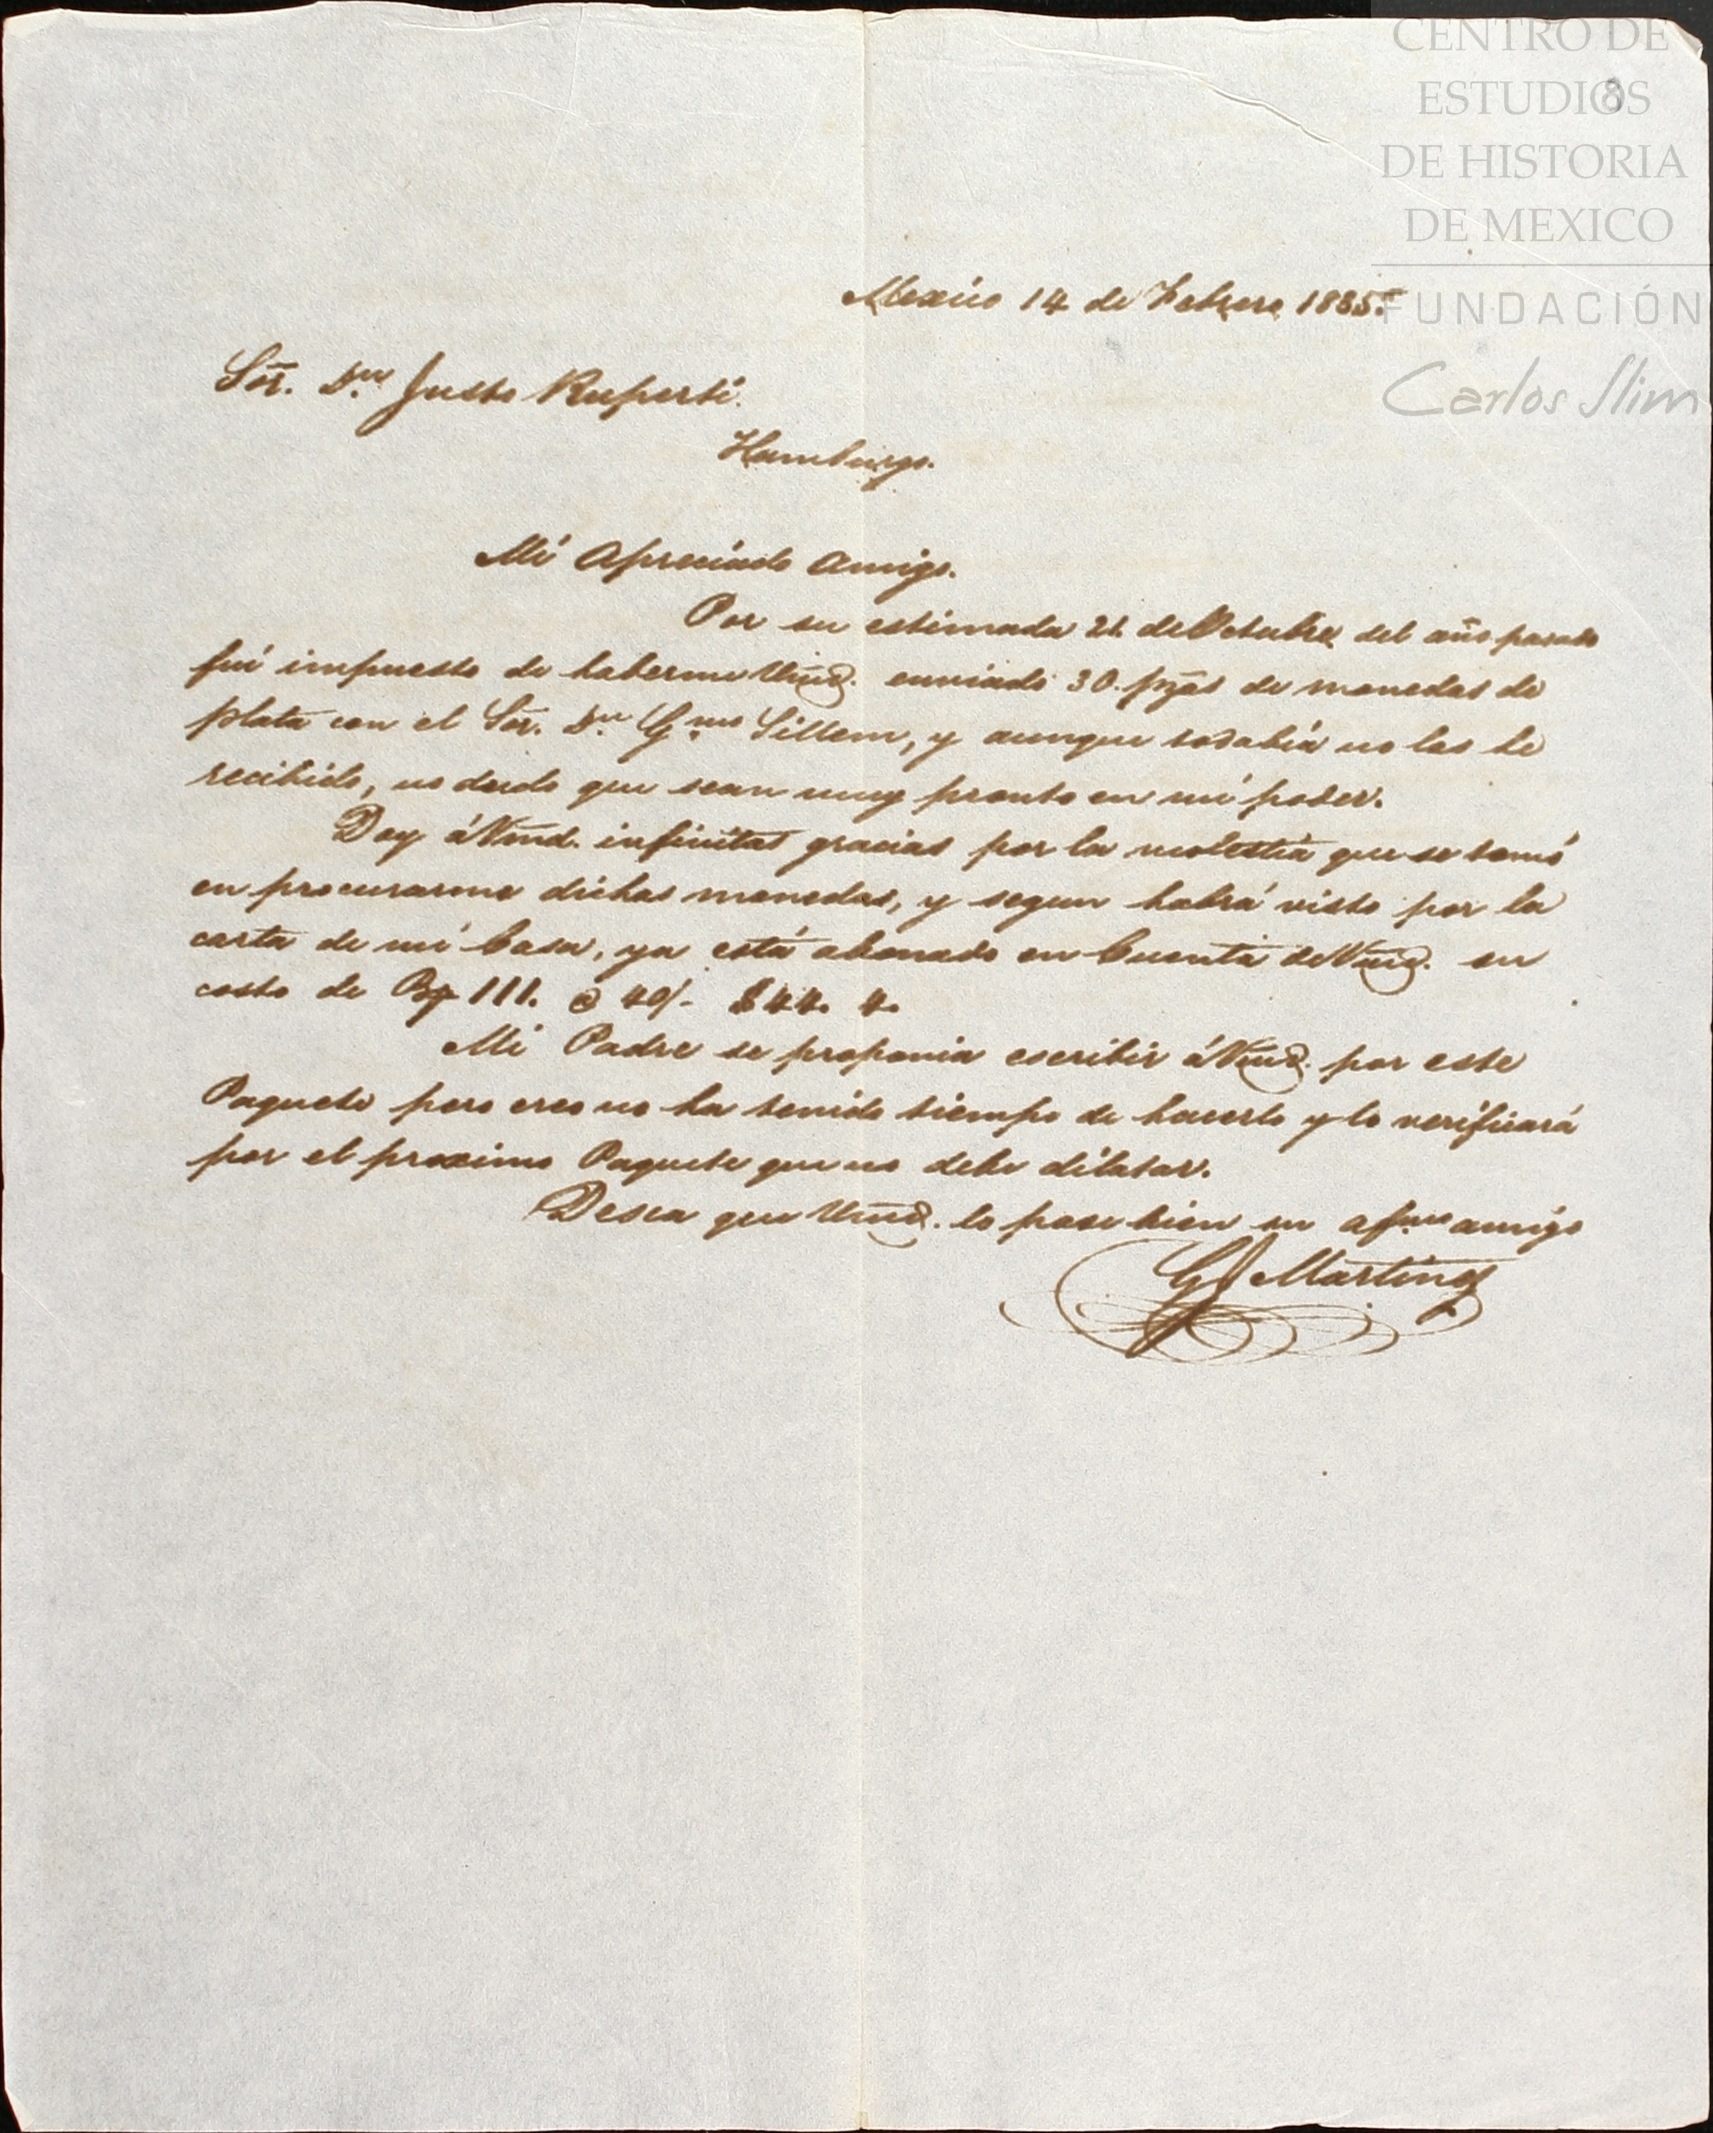 CENTRO DE
ESTUDIOS
DE HISTORIA
DE MEXICO
FUNDACIÓN
Carlos Slim
8
Mexico 14 de Febrero 1885.
Sor. Dn. Justo Ruperti.
Hamburgo.
Mi Apreciado Amigo.
Por su estimada 21 de Octubre del año pasado
fuí impuesto de haberme Vmd. enviado 30. pzas de monedas de
plata con el Sor. Dn. Gmo Sillem, y aunque todabia no las he
recibido, no dudo que sean muy pronto en mi poder.
Doy á Vmd. infinitas gracias por la molestia que se tomó
en procurarme dichas monedas, y segun habrá visto por la
carta de mi Casa, ya está abonado en Cuenta de Vmd. su
costo de 111. @ 40/- $44. 4.
Mi Padre se proponia escribir á Vmd. por este
Paquete pero creo no ha tenido tiempo de hacerlo y lo verificará
por el proximo Paquete que no debe dilatar.
Desea que Vmd. lo pase bien su afmo amigo
G Martinez